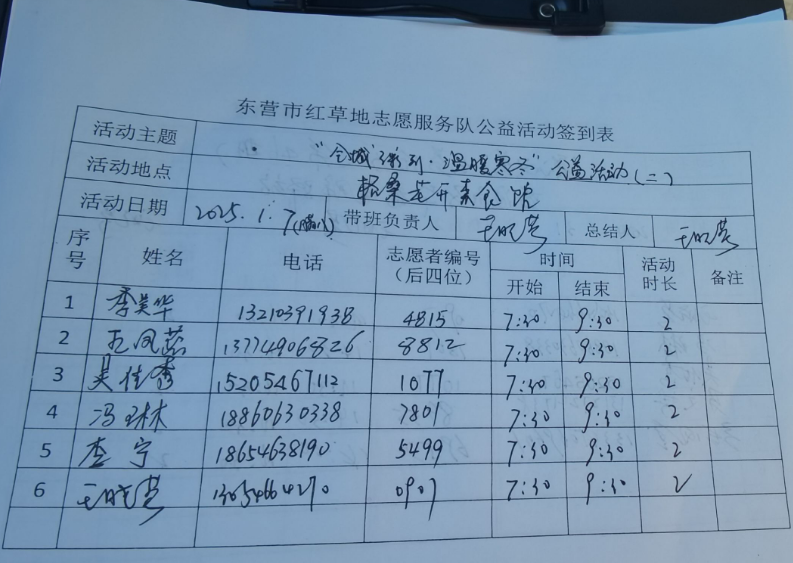 东营市红草地志愿服务队公益活动签到表
活动主题 "全城行动·温暖寒冬"公益活动(二)
活动地点 格桑花开素食馆
活动日期 2025.1.7(腊八) 带班负责人 王晓营 总结人 王晓营
序号 姓名 电话 志愿者编号（后四位） 时间 开始 结束 活动时长 备注
1 李美华 13210391938 4815 7:30 9:30 2
2 王凤蕊 13774906826 8812 7:30 9:30 2
3 吴佳秀 15205467112 1077 7:30 9:30 2
4 冯琳林 18860630338 7801 7:30 9:30 2
5 李宁 18654638190 5499 7:30 9:30 2
6 王晓营 13054664270 0907 7:30 9:30 2